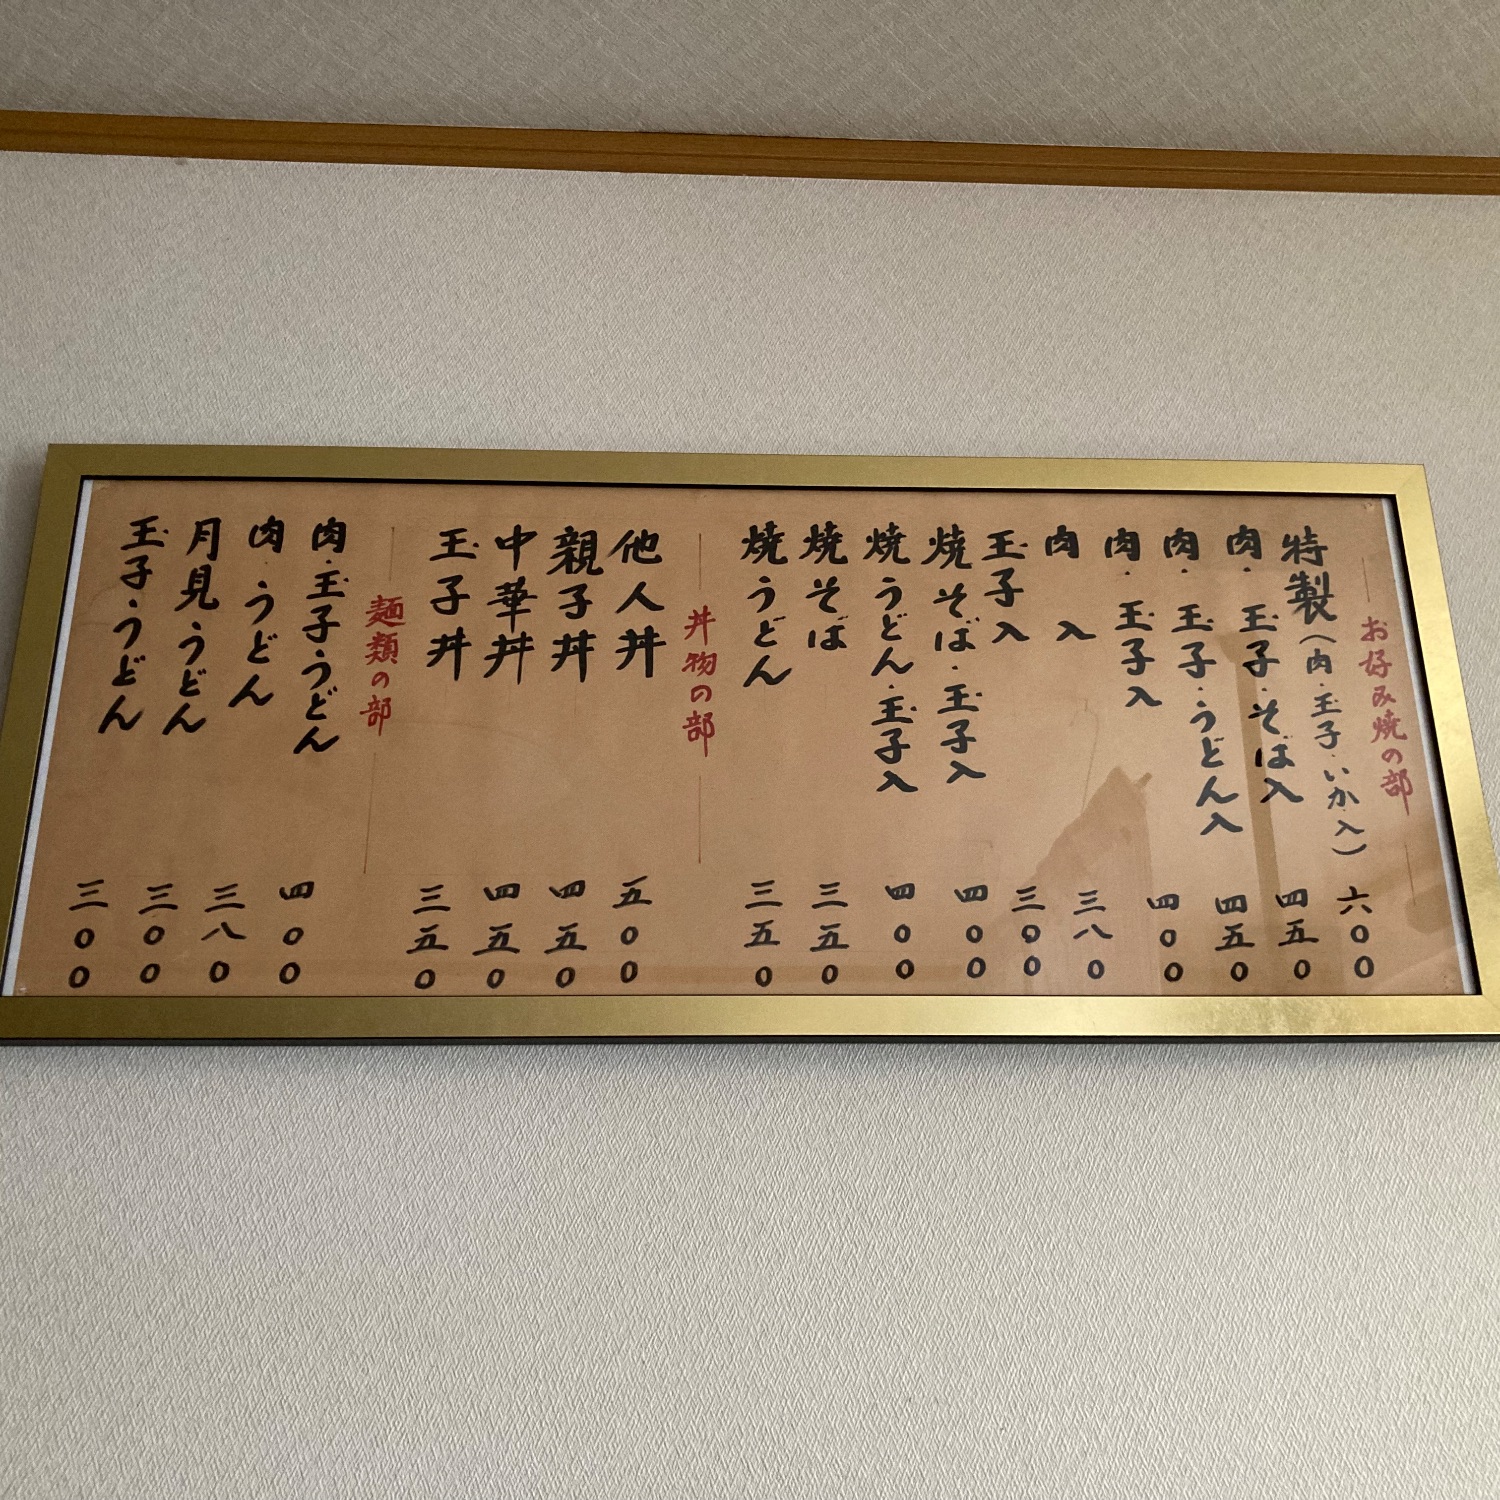 お好み焼の部
特製(肉・玉子・いか入) 六〇〇
肉・玉子・そば入 四五〇
肉・玉子・うどん入 四五〇
肉・玉子入 四〇〇
肉入 三八〇
玉子入 三〇〇
焼そば・玉子入 四〇〇
焼うどん・玉子入 四〇〇
焼そば 三五〇
焼うどん 三五〇
丼物の部
他人丼 五〇〇
親子丼 四五〇
中華丼 四五〇
玉子丼 三五〇
麺類の部
肉・玉子うどん 四〇〇
肉・うどん 三八〇
月見うどん 三〇〇
玉子・うどん 三〇〇